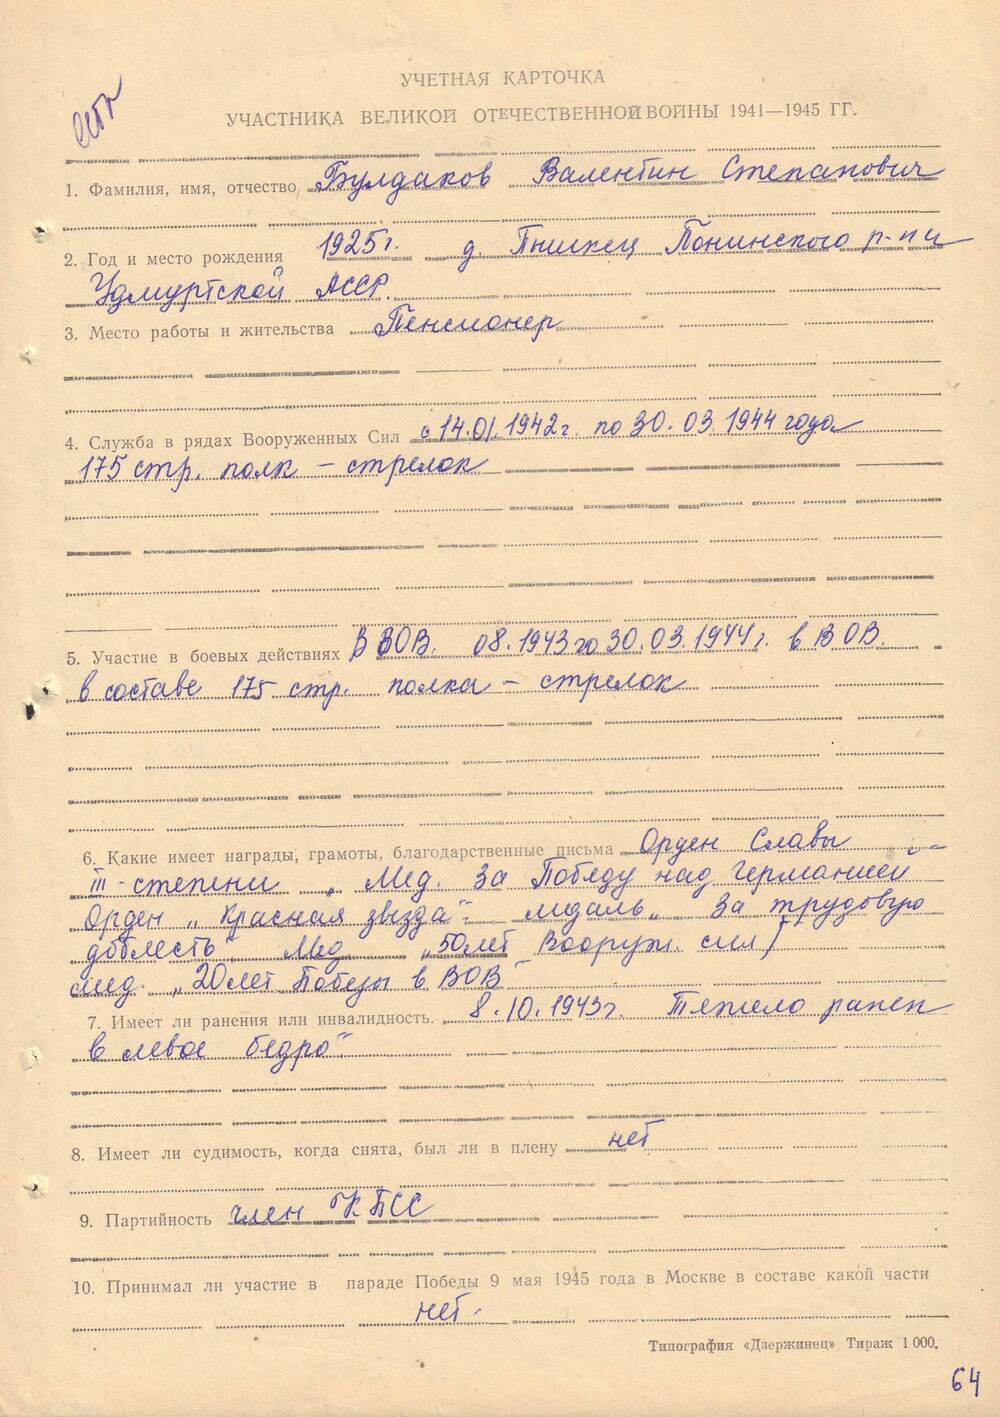 есть
УЧЕТНАЯ КАРТОЧКА
УЧАСТНИКА ВЕЛИКОЙ ОТЕЧЕСТВЕННОЙ ВОЙНЫ 1941—1945 ГГ.
1. Фамилия, имя, отчество Булдаков Валентин Степанович
2. Год и место рождения 1925г. д. Понинского р-на
Удмуртской АССР.
3. Место работы и жительства Пенсионер
4. Служба в рядах Вооруженных Сил с 14.01.1942г. по 30.03.1944 года
175 стр. полк – стрелок
5. Участие в боевых действиях В ВОВ. 08.1943 по 30.03.1944г. в ВОВ.
в составе 175 стр. полка – стрелок
6. Какие имеет награды, грамоты, благодарственные письма Орден Славы
III-степени „Мед. За Победу над Германией"
Орден „Красная звезда". медаль „За трудовую
доблесть". Мед. „50лет Вооруж. сил"
мед. „20лет Победы в ВОВ"
7. Имеет ли ранения или инвалидность. 8.10.1943г. Тяжело ранен
в левое бедро".
8. Имеет ли судимость, когда снята, был ли в плену нет
9. Партийность член КПСС
10. Принимал ли участие в параде Победы 9 мая 1945 года в Москве в составе какой части
нет.
Типография «Дзержинец» Тираж 1 000.
64